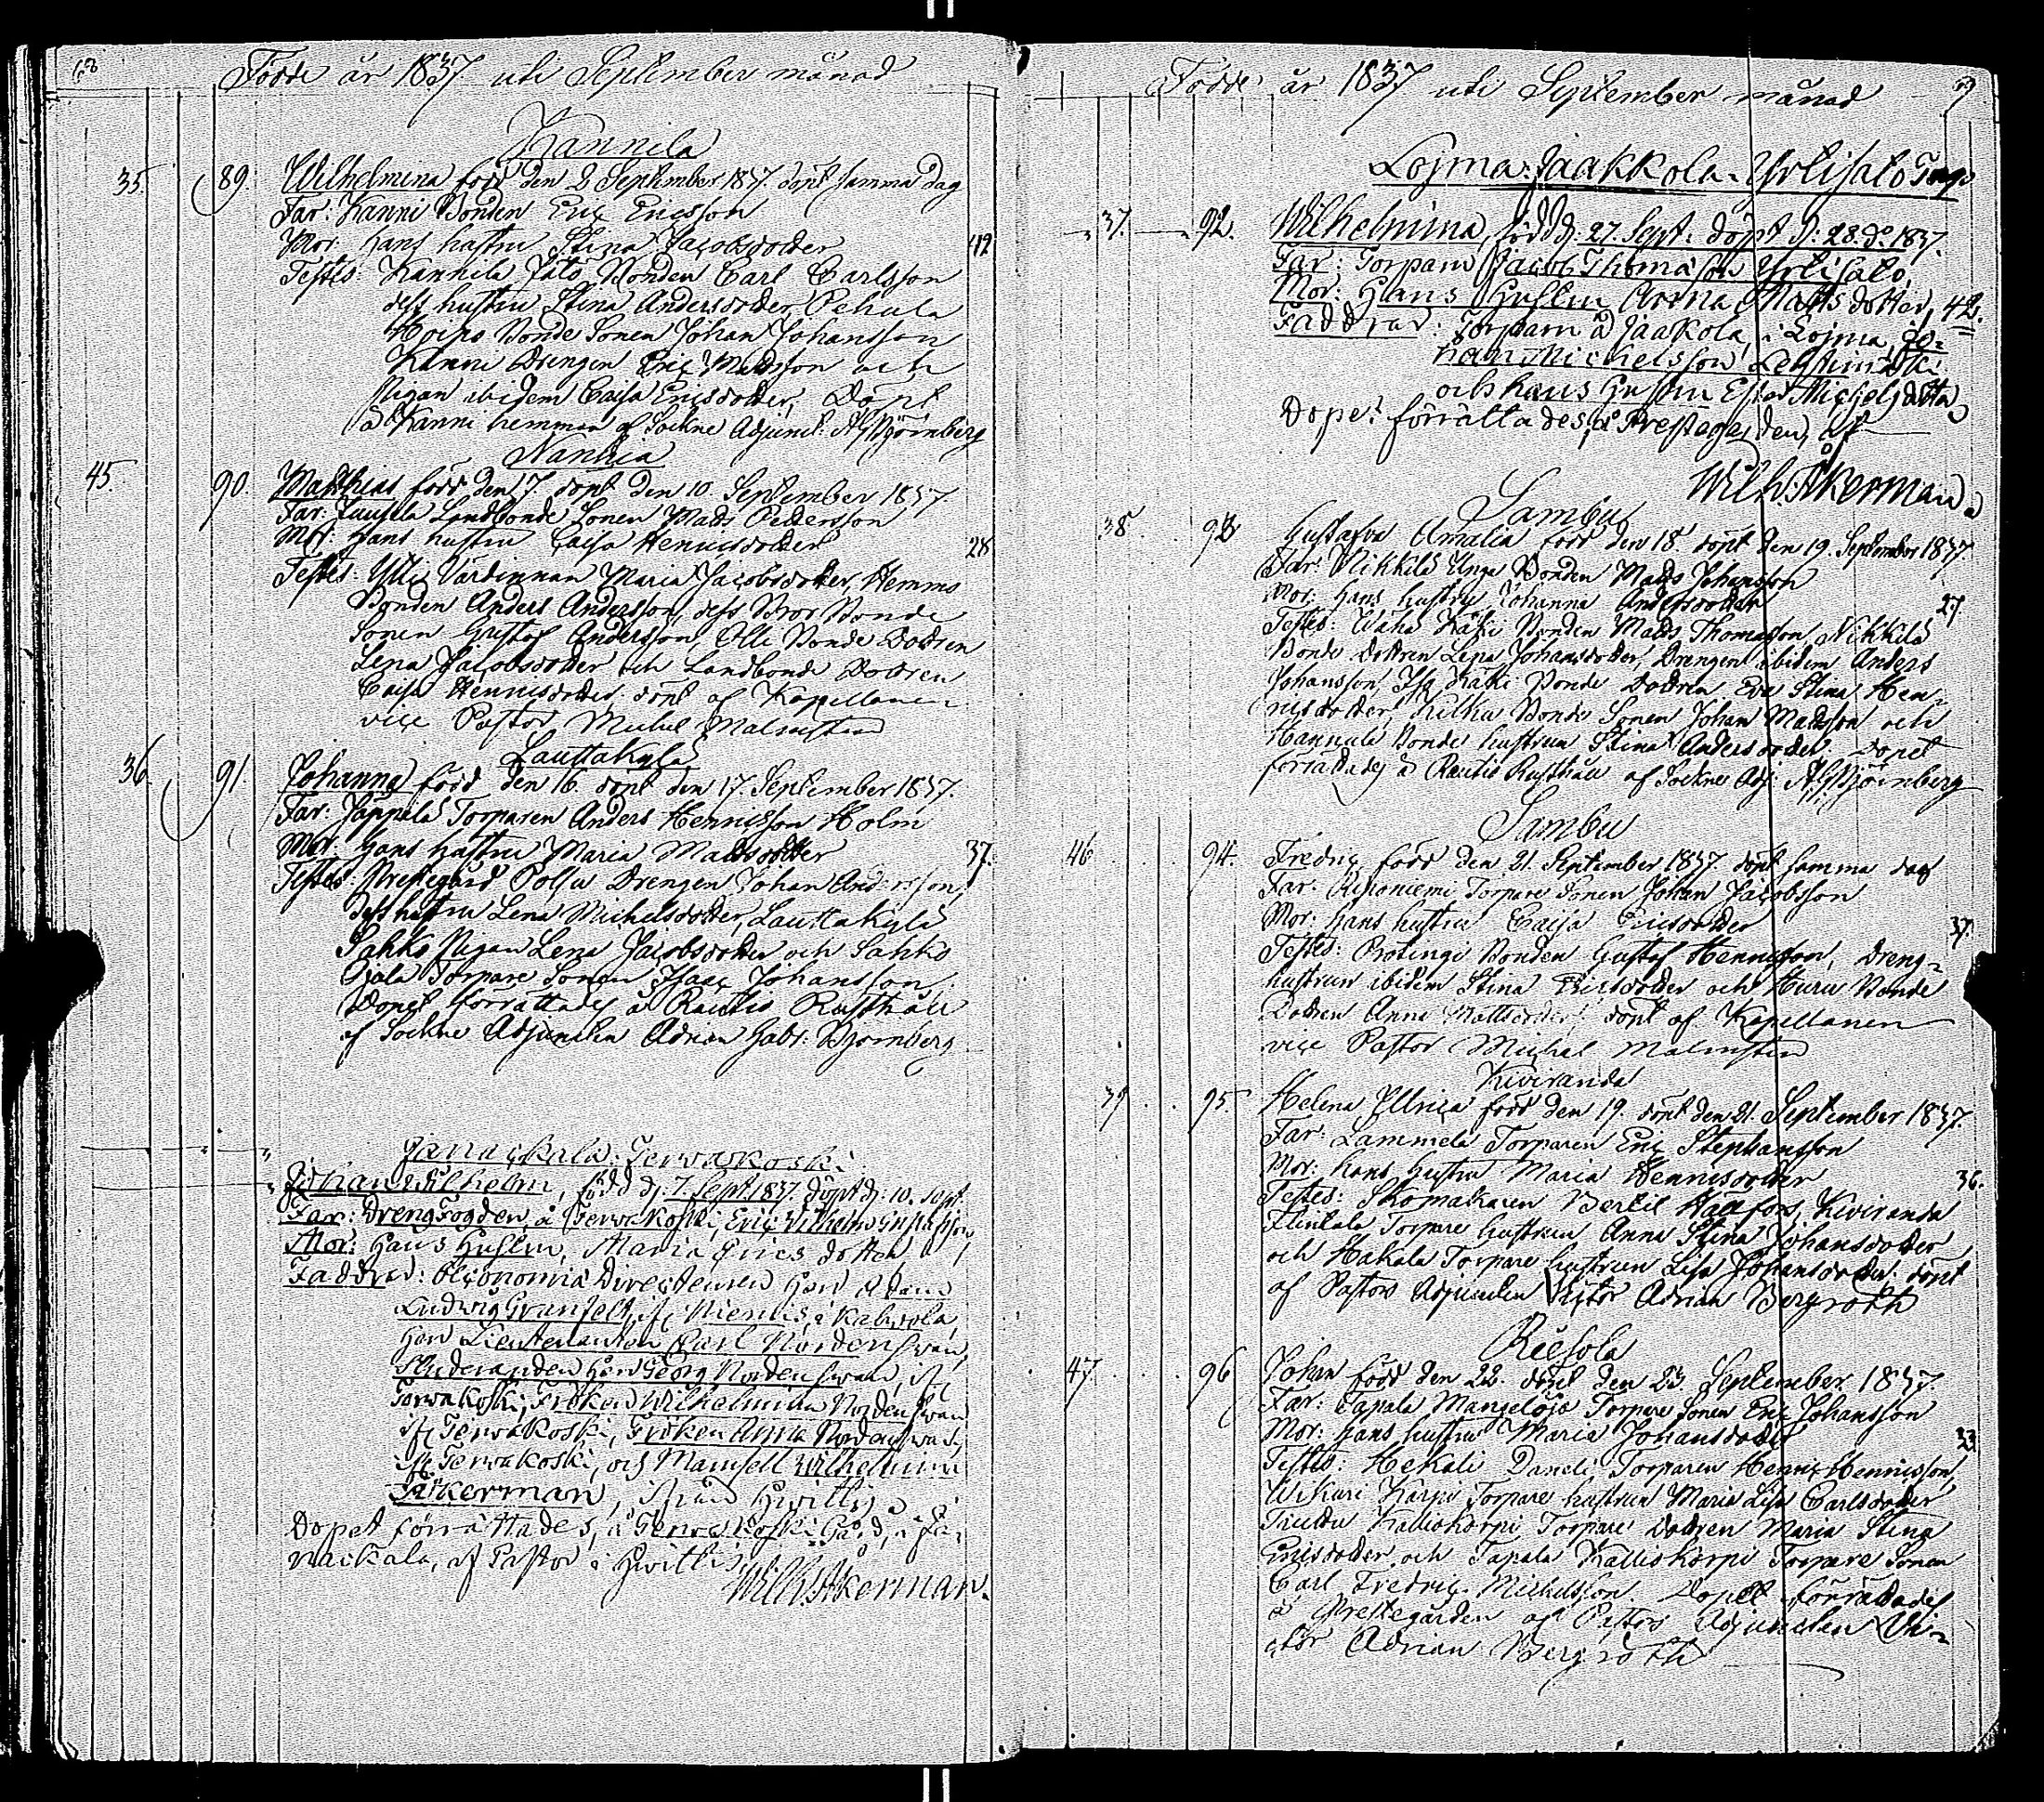 68
Födde år 1837 uti September månad
Kannila
35. 89. Wilhelmina född den 2 September 1837. döpt samma dag
Far: Kanni Bonden Eric Ericsson
Mor: hans hustru Stina Jacobsdotter 42
Testes: Kannila Jätö Bonden Carl Carlsson
dess hustru Stina Andersdotter, Pehula
Bonde Sonen Johan Johansson
Kanni Drengen Eric Mattsson och
Pigan ibidem Caisa Ericsdotter, Döpt
å Kanni hemman af Sockne Adjunct: AGBjörnberg
Nanhia
45. 90. Matthias född den 7. döpt den 10. September 1837
Far: Landbonde Sonen Matts Pettersson
Mor: hans hustru Caisa Henricsdotter 28
Testes: Ylli Värdinnan Maria Jacobsdotter, Hemmo
Bonden Anders Andersson, dess Bror Bonde
Sonen Gustaf Andersson, Olli Bonde Dottren
Lena Jacobsdotter och Landbonde Dottren
Caisa Henricsdotter, döpt af Kapellanen
vice Pastor Michel Malmsten
Lauttakylä
36. 91. Johanna född den 16. döpt den 17. September 1837.
Far: Jappala Torparen Anders Henricsson Holm
Mor: hans hustru Maria Mattsdotter 37.
Testes: Prestegård Polsu Drengen Johan Andersson,
dess hustru Lena Michelsdotter, Lauttakylä
Sahko Pigan Lena Jacobsdotter och Sahko
Ojala Torpare Sonen Isaac Johansson.
Dopet förrättades å Rautio Rusthåll
af Sockne Adjuncten Adrian Gabr: Bjornberg
Janackala: Terwakoski
Johan Wilhelm, född d: 7. Sept. 1837. döpt d: 10. Sept.
Far: DrengFogden, å Terwakoski, Eric Wilhelm Gustafsson,
Mor: Hans Hustru, Maria Erics dotter,
Faddrar: Oeconomie Directeuren Herr Adam
Ludwig Granfelt, if: Niemis, i Kalwola,
Herr Lieutenanten Carl Nordenswan,
Studeranden Herr Georg Nordenswan, if:
Terwakoski, Fröken Wilhelmina Nordenswan
if: Terwakoski, Fröken Anna Nordenswan,
if: Terwakoski, och Mamsell Wilhelmina
Åkerman, ifrån Hwittis
Dopet förrättades, å Terwakoski Gård, i Ja-
nackala, af Pastor i Hwittis,
Wilh: Åkerman.
Födde år 1837 uti September månad 69
Loima: Jaakkola. Yrlisalo Torp
37. 92. Wilhelmina, född d: 27. Sept: döpt d: 28. do 1837.
Far: Torparn Jacob Thomasson Yrlisalo,
Mor: Hans Hustru Anna Mattsdotter, 42.
Faddrar: Torparn å Jaakola, i Loima, Jo-
han Michelsson
och hans Hustru Ester Michelsdotter
Dopet förrättades, å Prestegården, af
Wilh: Åkerman
Sambu
38. 93 Gustafva Amalia född den 18. döpt den 19. September 1837
Far: Nikkilä Unga Bonden Matts Johansson
Mor: hans hustru Johanna Andersdotter 27.
Testes: Wäha Käki Bonden Matts Thomasson, Nikkilä
Bonde dottren Lena Johansdotter, Drengen ibidem Anders
Johansson, Iso Käki Bonde Dottren Eva Stina Hen-
ricsdotter, Kilkku Bonde Sonen Johan Mattsson och
Hannula Bonde hustrun Stina Andersdotter. Dopet
förrättades å Rautio Rusthåll af Sockne Adj: AGBjörnberg
Sambu
46. 94. Fredric född den 21. September 1837. döpt samma dag
Far: Torpare Sonen Johan Jacobsson
Mor: hans hustru Caisa Ericsdotter 37.
Testes: Protingi Bonden Gustaf Henricsson, Dreng-
hustrun ibidem Stina Ericsdotter och Huru Bonde
Dottren Anna Mattsdotter, döpt af Kapellanen
vice Pastor Michel Malmsten
Kiviranda
39 95. Helena Ullrica född den 19. döpt den 21. September 1837.
Far: Lammela Torparen Eric Stephansson
Mor: hans hustru Maria Henricsdotter 36.
Testes: Skomakaren Bertil Hällfors, Kiviranda
Flinkala Torpare hustrun Anna Stina Johansdotter
och Hakala Torpare hustrun Lisa Johansdotter, döpt
af Pastors Adjuncten Victor Adrian Bergroth
Riesola
47. 96 Johan född den 22. döpt den 23. September 1837.
Far: Tapala Mangeloja Torpare Sonen Eric Johansson
Mor: hans hustru Maria Johansdotter 23
Testes: Hekali Daneli Torparen Henric Henricsson,
Wikari Karpi Torpare hustrun Maria Lisa Carlsdotter
Kalliokorpi Torpare Dottren Maria Stina
Ericsdotter och Tapala Kalliokorpi Torpare Sonen
Carl Fredric Michelsson. Dopet förrättades
å Prestegården af Pastors Adjuncten Vi-
ctor Adrian Bergroth